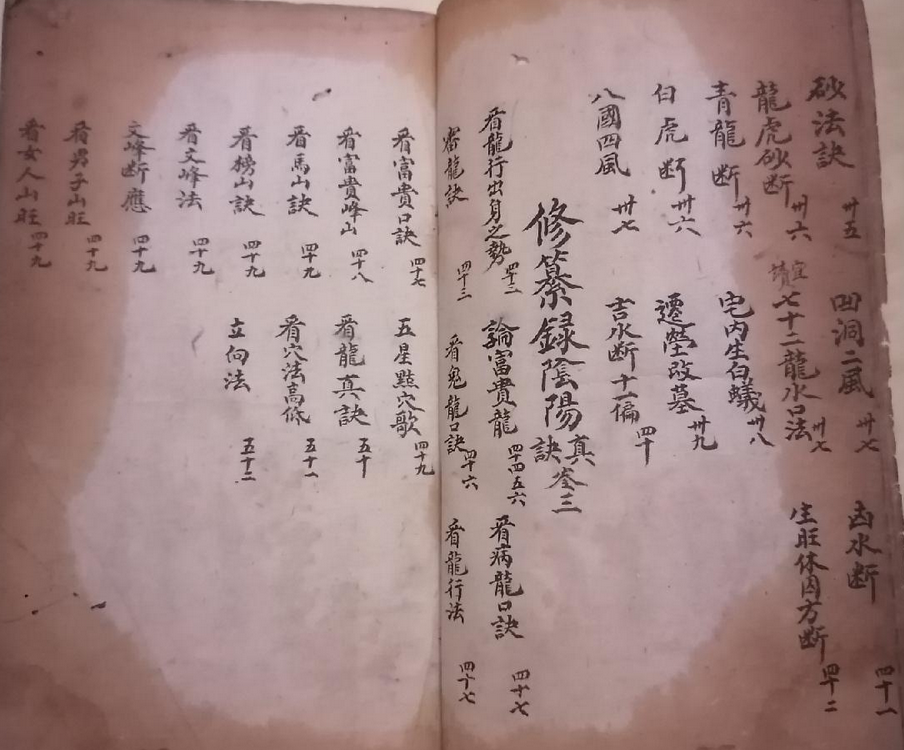 砂法訣 卅五 凹洞二風 卅七 凶水斷 四十一
龍虎砂斷 卅六 宜 七十二龍水口法 卅七 生旺休囚方斷 四十二
青龍斷 卅六 宅内生白蟻 卅八
白虎斷 卅六 遷塋改墓 卅九
八國四風 卅七 吉水斷十一偏 四十
修纂録陰陽真訣 卷三
看龍行出身之勢 四十二 論富貴龍 四十四五六 看病龍口訣 四十七
審龍訣 四十三 看鬼龍口訣 四十六 看龍行法 四十七
看富貴口訣 四十七 五星點穴歌 四十九
看富貴峰山 四十八 看龍真訣 五十
看馬山訣 四十九 看穴法高低 五十一
看榜山訣 四十九 立向法 五十二
看文峰法 四十九
文峰斷應 四十九
看男子山旺 四十九
看女人山旺 四十九